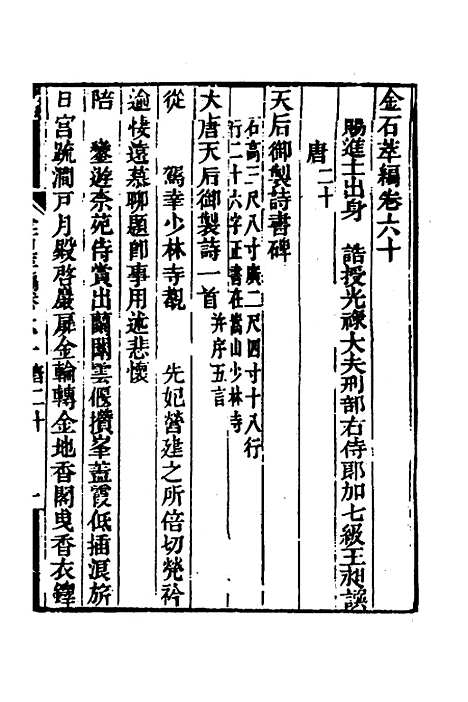 金石萃編卷六十
賜進士出身 誥授光祿大夫刑部右侍郎加七級王昶譔
唐二十
天后御製詩書碑
石高三尺八寸廣二尺四寸十八行
行二十六字正書在嵩山少林寺
大唐天后御製詩一首并序五言
從 駕幸少林寺觀 先妃營建之所倍切煢衿
逾悽遠慕聊題卽事用述悲懷
陪 鑾遊柰苑侍賞出蘭闈雲偃攢峯蓋霞低插浪旂
日宮疏澗戶月殿啓巖扉金輪轉金地香閣曳香衣鐸
金石萃編卷六十 唐二十 一